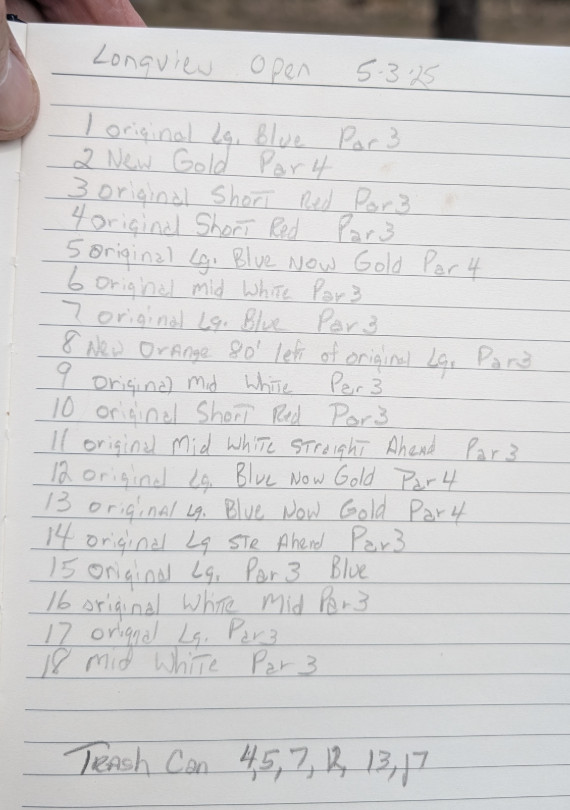 Longview Open 5-3-25
1 original Lg. Blue Par 3
2 New Gold Par 4
3 original Short Red Par 3
4 original Short Red Par 3
5 original Lg. Blue Now Gold Par 4
6 original mid white Par 3
7 original Lg. Blue Par 3
8 New Orange 80' left of original Lg. Par 3
9 original mid white Par 3
10 original Short Red Par 3
11 original Mid White Straight Ahead Par 3
12 original Lg. Blue Now Gold Par 4
13 original Lg. Blue Now Gold Par 4
14 original Lg Str Ahead Par 3
15 original Lg. Par 3 Blue
16 original White Mid Par 3
17 orignal Lg. Par 3
18 mid White Par 3
Trash Can 4,5, 7, 12, 13, 17